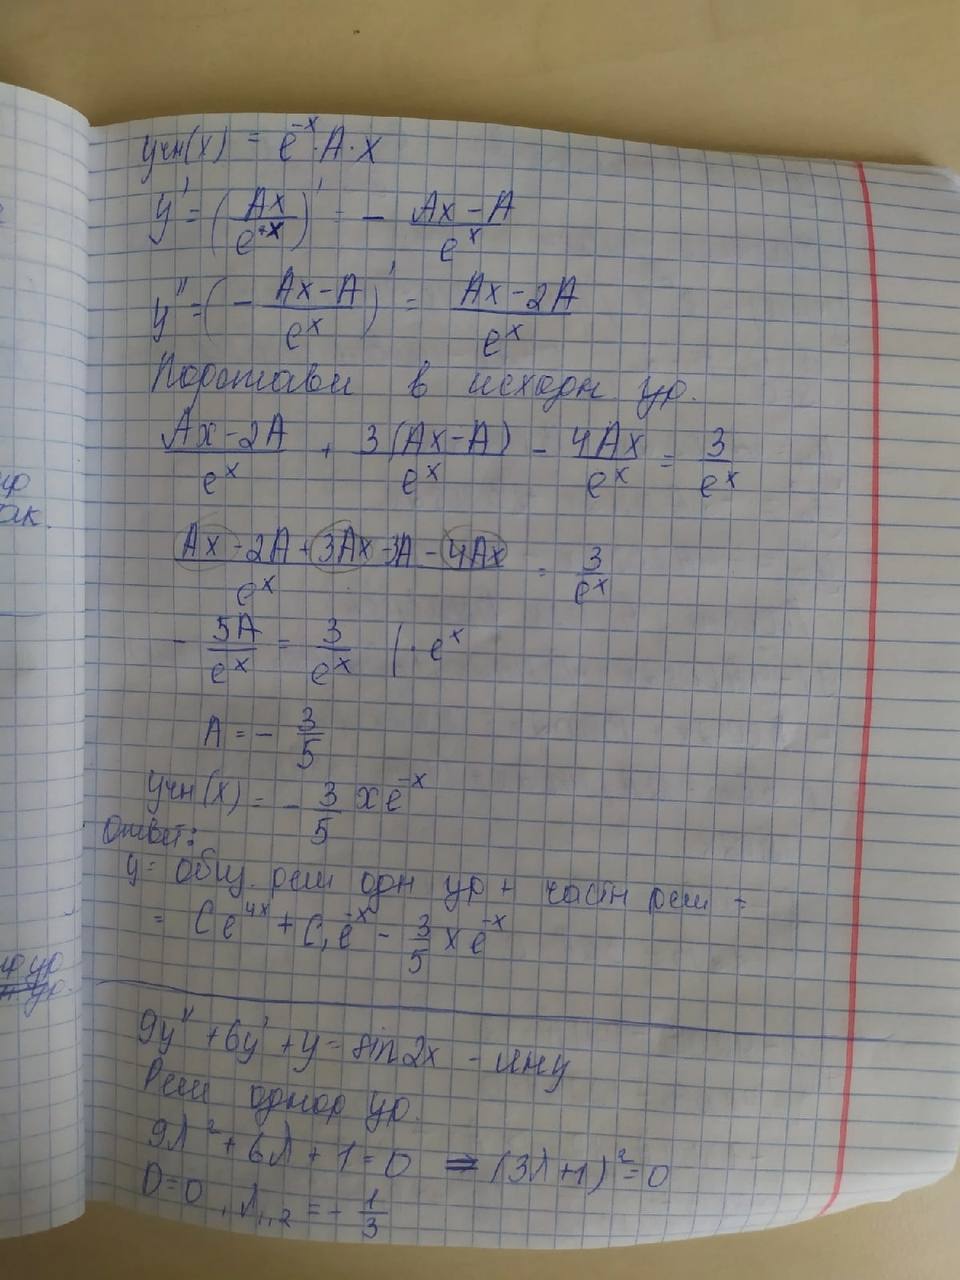 yчн(x) = e^-x · A · x
y' = (Ax/e^+x)' = - (Ax - A)/e^x
y'' = (- (Ax - A)/e^x)' = (Ax - 2A)/e^x
Подставим в исходн ур.
(Ax - 2A)/e^x + 3(Ax - A)/e^x - 4Ax/e^x = 3/e^x
(Ax - 2A + 3Ax - 3A - 4Ax)/e^x = 3/e^x
- 5A/e^x = 3/e^x | · e^x
A = - 3/5
yчн(x) = - 3/5 x e^-x
Ответ:
y = общ. реш одн ур + частн реш =
= Ce^4x + C₁e^-x - 3/5 x e^-x
9y'' + 6y' + y = sin 2x - лну
Реш однор ур.
9λ² + 6λ + 1 = 0 ⇒ (3λ + 1)² = 0
D = 0, λ₁,₂ = - 1/3